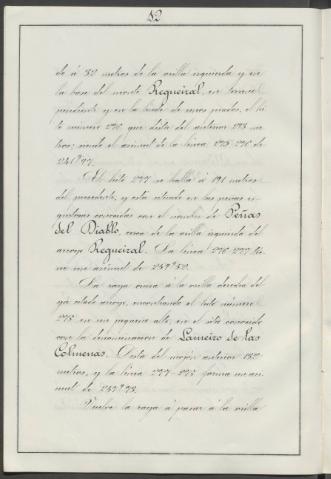 82
de á 32 metros de la orilla izquierda y en
la base del monte Regueiral, en terreno
pendiente y en la linde de unos prados, el hi
to número 276 que dista del anterior 198 me
tros; siendo el azimut de la línea
El hito 277 se halla á 191 metros
del precedente, y está situado en las peñas
conocidas con el nombre de Peñas
del Diablo, cerca de la orilla izquierda del
arroyo Regueiral. La línea 276-277 tie
ne un azimut de
La raya cruza á la orilla derecha del
ya citado arroyo, encontrando el hito número
278 en un pequeño alto, en el sitio conocido
con la denominación de Lameiro de las
Colmenas. Dista del mojón anterior
metros, y la línea 277-278 forma un azi
mut de
Vuelve la raya á pasar á la orilla